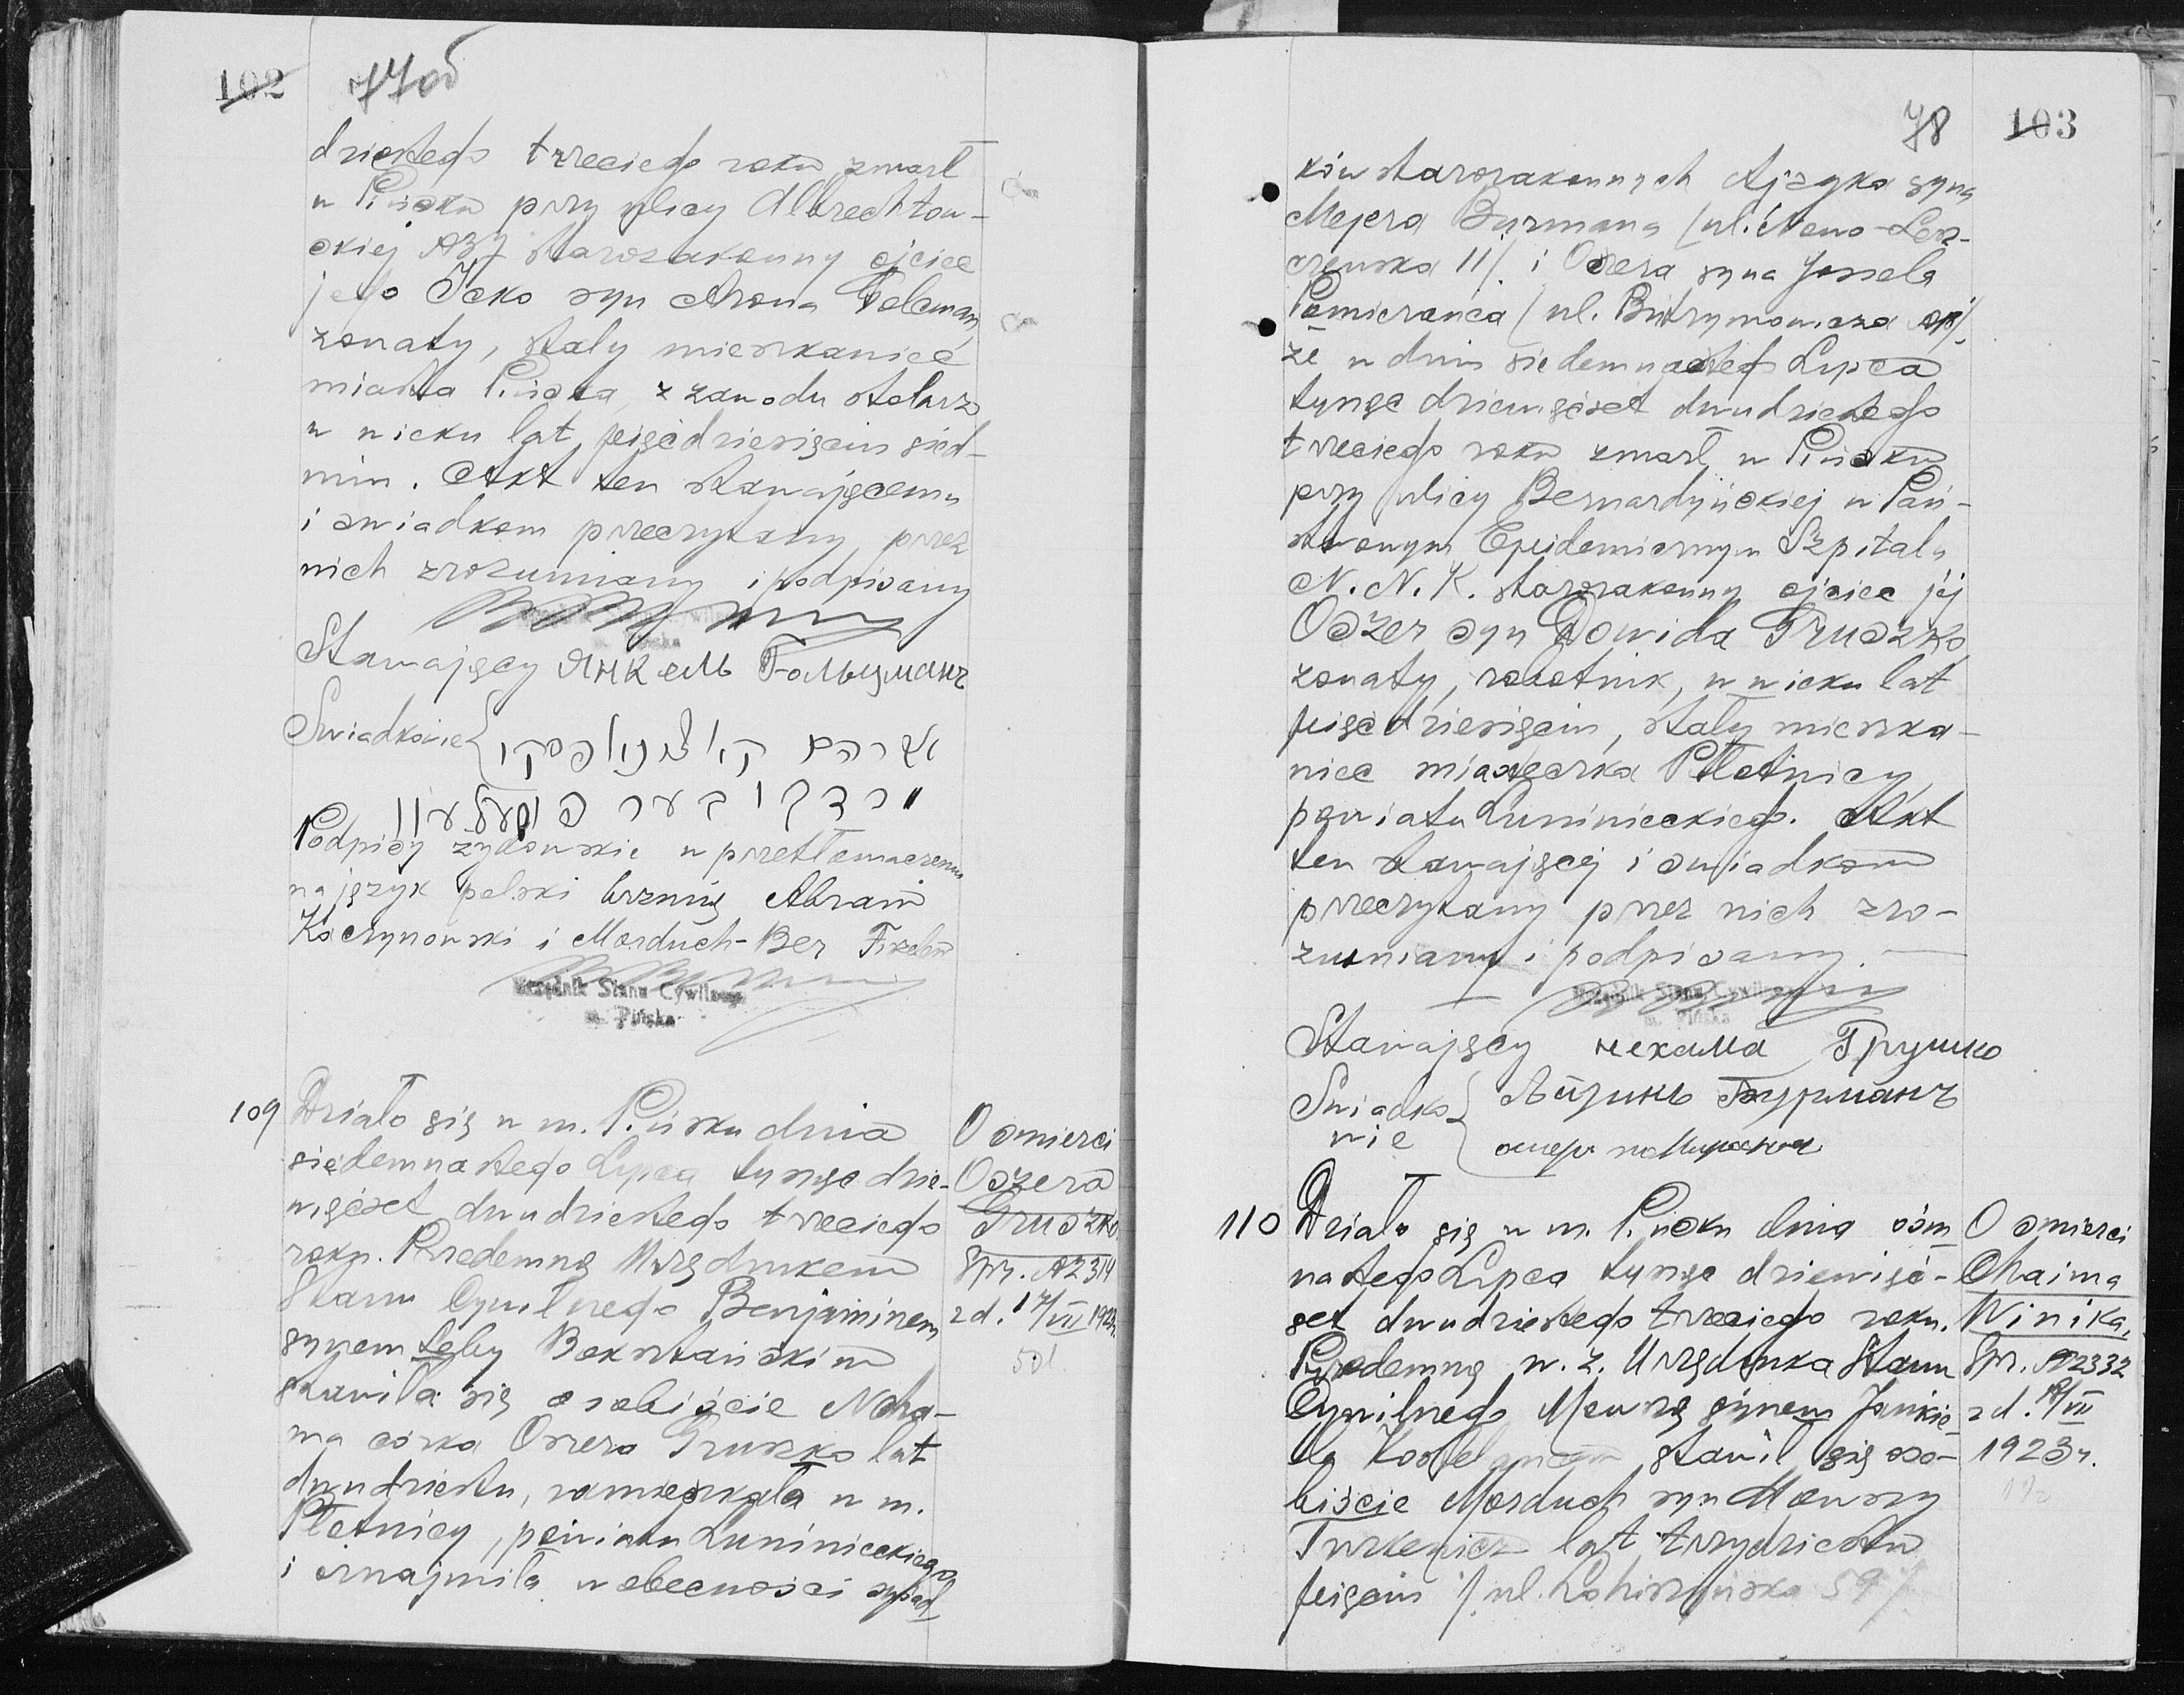 102 77об
dziestego trzeciego roku zmarł
w Pińsku przy ulicy Albrechtow-
skiej №37 starozakonny ojciec
jego Icko syn Arona Golcman,
żonaty, stały mieszkaniec
miasta Pińska, z zawodu stolarz
w wieku lat pięćdziesięciu sied-
miu. Akt ten stawającemu
i świadkom przeczytany, przez
nich zrozumiany i podpisany
Stawający Янкель Гольцманъ
Świadkowie
Podpisy żydowskie w przetłomaczeniu
na język polski brzmią Abram
Koczynowski i Morduch-Ber
Urzędnik Stanu Cywilnego
m. Pińska
109 Działo się w m. Pińsku dnia
siedemnastego Lipca tysiąc dzie-
więćset dwudziestego trzeciego
roku. Przedemną Urzędnikem
Stanu Cywilnego Benjaminem
synem Leby Bokrztańskim
stawiła się osobiście Necha-
ma córka Oszera Gruszko lat
dwudziestu, zamieszkała w m.
Płotnicy, powiatu Łuninieckiego
i oznajmiła w obecności świad
O śmierci
Oszera
Gruszko
Spr. №2314
z d. 17/VII 1923r.
78 103
ków starozakonnych Ajzyka syna
Mejera Burmana /ul. Nowo-Lesz-
czyńska 11/ i Oszera syna Jossela
Pomieranca /ul. Butrymowicza
że w dniu siedemnastego Lipca
tysiąc dziewięćset dwudziestego
trzeciego roku zmarł w Pińsku
przy ulicy Bernardyńskiej w Pań-
stwowym Epidemicznym Szpitalu
N.N.K. starozakonny ojciec jej
Oszer syn Dowida Gruszko
żonaty, robotnik, w wieku lat
pięćdziesięciu, stały mieszka-
niec miasteczka Płotnicy
powiatu Łuninieckiego. Akt
ten stawającej i świadkom
przeczytany przez nich zro-
zumiany i podpisany. —
Urzędnik Stanu Cywilnego
m. Pińska
Stawający Нехама Грушко
Świadko
wie
Айзикъ Бурманъ
110 Działo się w m. Pińsku dnia ośm
nastego Lipca tysiąc dziewięć-
set dwudziestego trzeciego roku.
Przedemną w. z. Urzędnika Stanu
Cywilnego Mowszą synem Jankie-
la stawił się oso-
biście Morduch syn Mowszy
Turkenicz lat trzydziestu
pięciu /ul. Lohiszyńska 59/
O śmierci
Chaima
Winika,
Spr. №2332
z d. 18/VII
1923r.